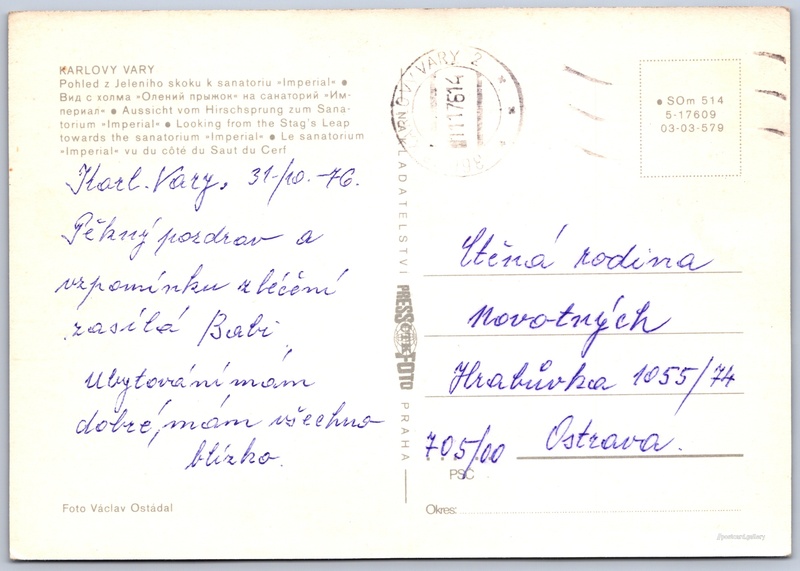 KARLOVY VARY
Pohled z Jeleního skoku k sanatoriu »Imperial« ●
Вид с холма »Олений прыжок« на санаторий »Им-
периал« ● Aussicht vom Hirschsprung zum Sana-
torium »Imperial« ● Looking from the Stag's Leap
towards the sanatorium »Imperial« ● Le sanatorium
»Imperial« vu du côté du Saut du Cerf
Karl. Vary, 31-10.-76.
Pěkný pozdrav a
vzpomínku z léčení
zasílá Babi.
Ubytování mám
dobré, mám všechno
blízko.
Foto Václav Ostádal
KARLOVY VARY 2
NAKLADATELSTVÍ
PRESS
ČTK
FOTO
PRAHA
● SOm 514
5-17609
03-03-579
Ctěná rodina
Novotných
Hrabůvka 1055/74
705/00 Ostrava.
PSČ
Okres:
//postcard.gallery